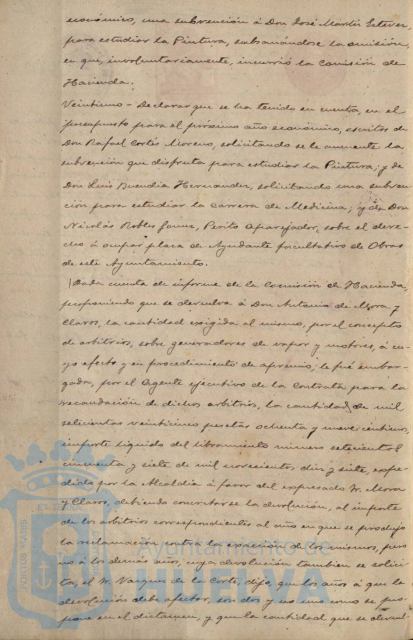 económico, una subvención á Don José Martín Estévez,
para estudiar la Pintura, subsanándose la omisión,
en que, involuntariamente, incurrió la Comisión de
Hacienda.
Veintiuno - Declarar que se ha tenido en cuenta, en el
presupuesto para el próximo año económico, escritos de
Don Rafael Cortés Moreno, solicitando se le aumente la
subvención que disfruta para estudiar la Pintura; y de
Don Luis Buendía Hernández, solicitando una subven-
ción para estudiar la carrera de Medicina; y de Don
Nicolás Robles Jaime, Perito Aparejador, sobre el dere-
cho á ocupar plaza de Ayudante facultativo de Obras
de este Ayuntamiento.
Dada cuenta de informe de la Comisión de Hacienda,
proponiendo que se devuelva á Don Antonio de Mora y
Claros, la cantidad exigida al mismo, por el concepto
de arbitrios, sobre generadores de vapor y motores, á cu-
yo efecto y en procedimiento de apremio, le fué embar-
gada, por el Agente ejecutivo de la Contrata para la
recaudación de dichos arbitrios, la cantidad de mil
setecientas veinticinco pesetas ochenta y nueve céntimos,
importe líquido del libramiento número setecientos
cincuenta y siete de mil novecientos diez y siete, expe-
dido por la Alcaldía á favor del expresado Sr. Mora
y Claros, debiendo concretarse la devolución, al importe
de los arbitrios correspondientes al año en que se produjo
la reclamación contra la exacción de los mismos, pero
no á los demás años, cuya devolución también se solici-
ta, el Sr. Vázquez de la Corte, dijo, que los años á que la
devolución debe afectar, son dos y no uno como se pro-
pone en el dictamen, y que la cantidad que se devuel-
Ayuntamiento de
HUELVA